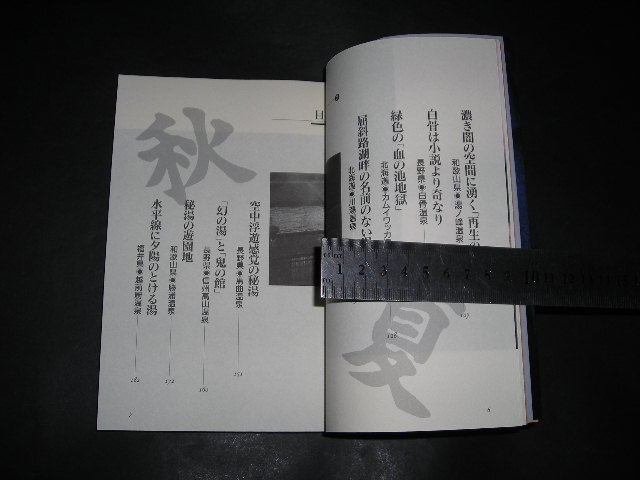 夏
濃き闇の空間に湧く「再生の
和歌山県●湯ノ峰温泉
127
白骨は小説より奇なり
長野県●白骨温泉
緑色の「血の池地獄」
北海道●カムイワッカ
128
屈斜路湖畔の名前のない
北海道●川湯温泉
6
目
秋
空中浮遊感覚の秘湯
長野県●馬曲温泉
151
「幻の湯」と「鬼の館」
長野県●信州高山温泉
161
秘湯の遊園地
和歌山県●勝浦温泉
172
水平線に夕陽のとける湯
福井県●越前厨温泉
182
7
cm
1 2 3 4 5 6 7 8 9 10 11 12 13